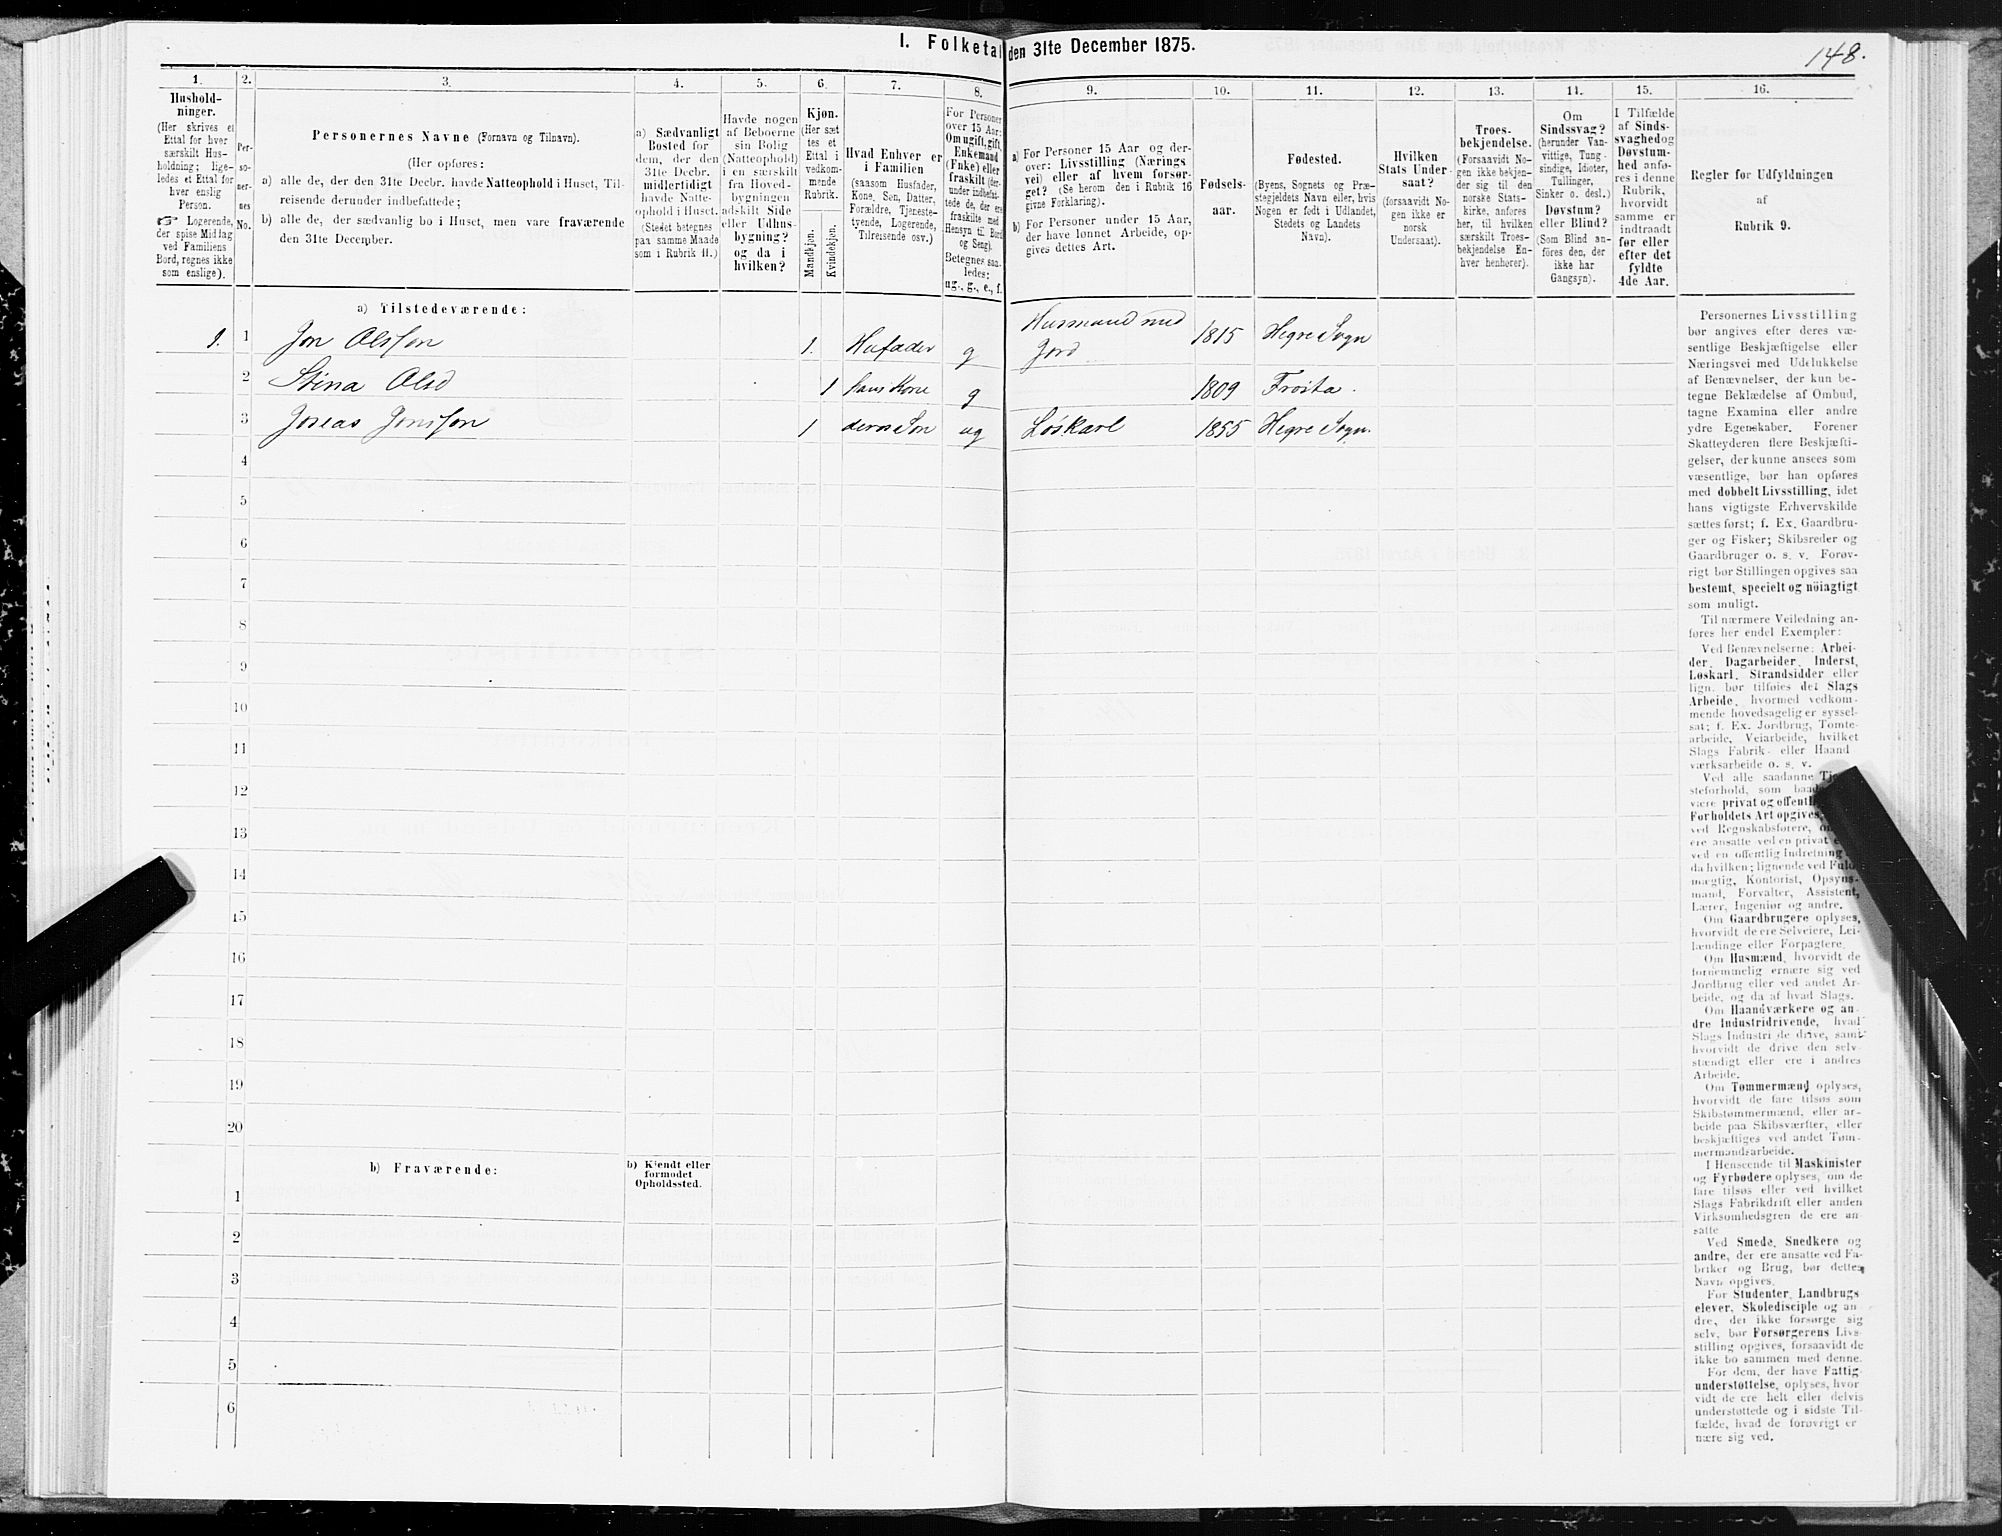 I. Folketal den 31te December 1875.
148.
1.
Hushold-
ninger.
(Her skrives et
Ettal for hver
særskilt Hus-
holdning; lige-
ledes et Ettal for
hver enslig
Person.
☞ Logerende,
der spise Middag
ved Familiens
Bord, regnes ikke
som enslige).
2.
Per-
so-
ner-
nes
No.
3.
Personernes Navne (Fornavn og Tilnavn).
(Her opføres:
a) alle de, der den 31te Decbr. havde Natteophold i Huset, Til-
reisende derunder indbefattede;
b) alle de, der sædvanlig bo i Huset, men vare fraværende
den 31te December.
4.
a) Sædvanligt
Bosted for
dem, der den
31te Decbr.
midlertidigt
havde Natte-
ophold i Huset.
(Stedet betegnes
paa samme Maade
som i Rubrik 11.)
5.
Havde nogen
af Beboerne
sin Bolig
(Natteophold)
i en særskilt
fra Hoved-
bygningen
adskilt Side
eller Udhus-
bygning?
og da i
hvilken?
6.
Kjøn.
(Her sæt-
tes et
Ettal i
vedkom-
mende
Rubrik.
Mandkjøn.
Kvindekjøn.
7.
Hvad Enhver er
i Familien
(saasom Husfader,
Kone, Søn, Datter,
Forældre, Tjeneste-
tyende, Logerende,
Tilreisende osv.)
8.
For Personer
over 15 Aar:
Om ugift, gift,
Enkemand
(Enke) eller
fraskilt (der-
under indbefat-
tede de, der ere
fraskilte med
Hensyn til Bord
og Seng).
Betegnes saa-
ledes:
ug., g., e., f.
9.
a) For Personer 15 Aar og der-
over: Livsstilling (Nærings
vei) eller af hvem forsør-
get? (Se herom den i Rubrik 16
givne Forklaring).
b) For Personer under 15 Aar,
der have lønnet Arbeide, op-
gives dettes Art.
10.
Fødsels-
aar.
11.
Fødested.
(Byens, Sognets og Præ-
stegjeldets Navn eller, hvis
Nogen er født i Udlandet,
Stedets og Landets
Navn).
12.
Hvilken
Stats Under-
saat?
(forsaavidt No-
gen ikke er
norsk
Undersaat).
13.
Troes-
bekjendelse.
(Forsaavidt No-
gen ikke bekjen-
der sig til den
norske Stats-
kirke, anføres
her, til hvilken
særskilt Troes-
bekjendelse En-
hver henhører).
14.
Om
Sindssvag?
(herunder Van-
vittige, Tung-
sindige, Idioter,
Tullinger,
Sinker o. desl.)
Døvstum?
eller Blind?
(Som Blind an-
føres den, der
ikke har
Gangsyn).
15.
I Tilfælde
af Sinds-
svaghed og
Døvstum-
hed anfø-
res i denne
Rubrik,
hvorvidt
samme er
indtraadt
før eller
efter det
fyldte
4de Aar.
16.
Regler for Udfyldningen
af
Rubrik 9.
a) Tilstedeværende:
1. 1 Jon Olsson 1. Husfader g Husmand med Jord 1815 Hegre Sogn
2 Stina Olsd 1 hans Kone g 1809 Frosta.
3 Joseas Jonsson 1 deres Søn ug Løskarl 1855 Hegre Sogn.
4
5
6
7
8
9
10
11
12
13
14
15
16
17
18
19
20
b) Fraværende:
b) Kjendt eller
formodet
Opholdssted.
1
2
3
4
5
6
Personernes Livsstilling
bør angives efter deres væ-
sentlige Beskjæftigelse eller
Næringsvei med Udelukkelse
af Benævnelser, der kun be-
tegne Beklædelse af Ombud,
tagne Examina eller andre
ydre Egenskaber. Forener
Skatteyderen flere Beskjæfti-
gelser, der kunne ansees som
væsentlige, bør han opføres
med dobbelt Livsstilling, idet
hans vigtigste Erhvervskilde
sættes først; f. Ex. Gaardbru-
ger og Fisker; Skibsreder og
Gaardbruger o. s. v. Forøv-
rigt bør Stillingen opgives saa
bestemt, specielt og nöiagtigt
som muligt.
Til nærmere Veiledning an-
føres her endel Exempler:
Ved Benævnelserne: Arbei-
der, Dagarbeider, Inderst,
Løskarl, Strandsidder eller
lign. bør tilføies det Slags
Arbeide, hvormed vedkom-
mende hovedsagelig er syssel-
sat; f. Ex. Jordbrug, Tomte-
arbeide, Veiarbeide, hvilket
Slags Fabrik- eller Haand-
værksarbeide o. s. v.
Ved alle saadanne
steforhold, som
være privat og
Forholdets Art opgives,
ved Regnskabsførere,
ere ansatte ved en privat
ved en offentlig Indretning
da hvilken; lignende ved Fuld-
mægtig, Kontorist, Opsyns-
mand, Forvalter, Assistent,
Lærer, Ingeniør og andre.
Om Gaardbrugere oplyses,
hvorvidt de ere Selveiere, Lei-
lændinge eller Forpagtere.
Om Husmænd, hvorvidt de
fornemmelig ernære sig ved
Jordbrug eller ved andet Ar-
beide, og da af hvad Slags.
Om Haandværkere og an-
dre Industridrivende, hvad
Slags Industri de drive, samt
hvorvidt de drive den selv-
stændigt eller ere i andres
Arbeide.
Om Tømmermænd oplyses,
hvorvidt de fare tilsøs som
Skibstømmermænd, eller ar-
beide paa Skibsværfter, eller
beskjæftiges ved andet Tøm-
mermandsarbeide.
I Henseende til Maskinister
og Fyrbødere oplyses, om de
fare tilsøs eller ved hvilket
Slags Fabrikdrift eller anden
Virksomhedsgren de ere an-
satte
Ved Smede, Snedkere og
andre, der ere ansatte ved Fa-
briker og Brug, bør dettes
Navn opgives.
For Studenter, Landbrugs
elever, Skoledisciple og an-
dre, der ikke forsørge sig
selv, bør Forsørgerens Livs-
stilling opgives, forsaavidt de
ikke bo sammen med denne.
For dem, der have Fattig
understøttelse, oplyses, hvor
vidt de ere helt eller delvis
understøttede og i sidste Til-
fælde, hvad de forøvrigt er
nære sig ved.